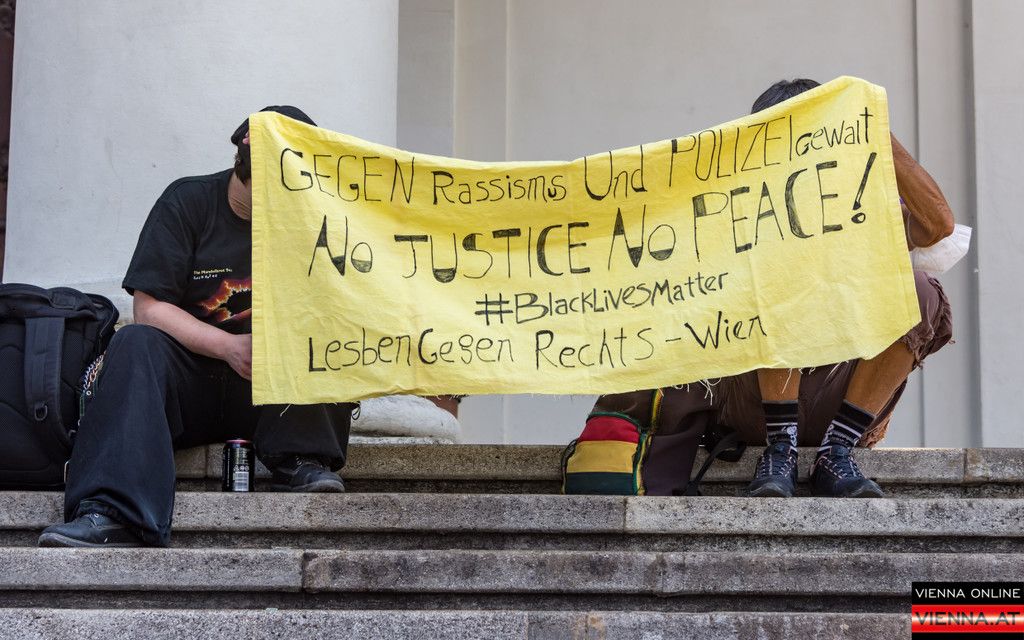 GEGEN Rassisms Und POLIZEIgewalt
No JUSTICE No PEACE!
#BlackLivesMatter
Lesben Gegen Rechts - Wien
VIENNA ONLINE
VIENNA.AT